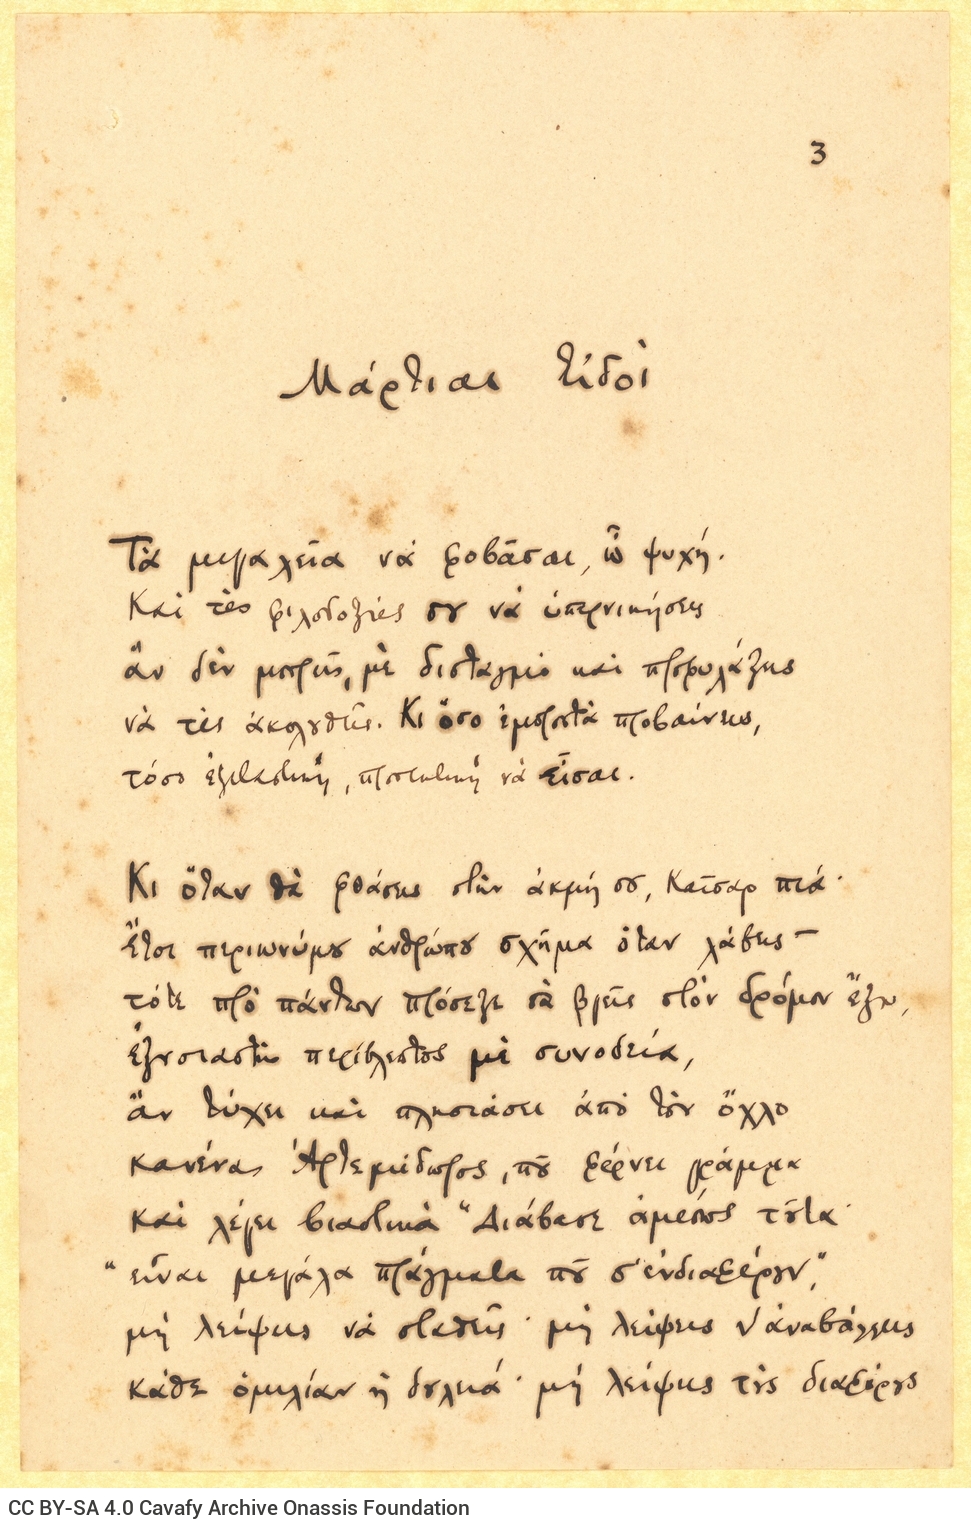 3
Μάρτιαι Εἰδοὶ
Τὰ μεγαλεῖα νὰ φοβᾶσαι, ὦ ψυχή.
Καὶ τὲς φιλοδοξίες σου νὰ ὑπερνικήσεις
ἂν δὲν μπορεῖς, μὲ δισταγμὸ καὶ προφυλάξεις
νὰ τὲς ἀκολουθεῖς. Κι ὅσο ἐμπροστὰ προβαίνεις,
τόσο ἐξεταστική, προσεκτικὴ νὰ εἶσαι.
Κι ὅταν θὰ φθάσεις στὴν ἀκμή σου, Καῖσαρ πιά·
ἔτσι περιωνύμου ἀνθρώπου σχῆμα ὅταν λάβεις —
τότε πρὸ πάντων πρόσεξε σὰ βγεῖς στὸν δρόμον ἔξω,
ἐξουσιαστὴς περίβλεπτος μὲ συνοδεία,
ἂν τύχει καὶ πλησιάσει ἀπὸ τὸν ὄχλο
κανένας Ἀρτεμίδωρος, ποῦ φέρνει γράμμα
καὶ λέγει βιαστικὰ “Διάβασε ἀμέσως τοῦτα·
“εἶναι μεγάλα πράγματα ποῦ σ’ ἐνδιαφέρουν”,
μὴ λείψεις νὰ σταθεῖς· μὴ λείψεις ν’ ἀναβάλεις
κάθε ὁμιλίαν ἢ δουλειά· μὴ λείψεις τοὺς διαφόρους